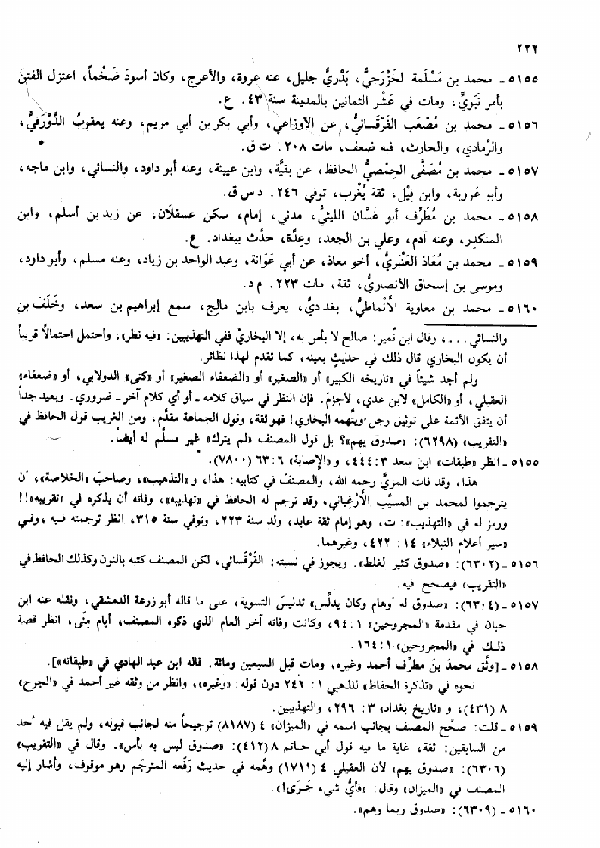 ٢٢٢
٥١٥٥ - محمد بن مَسْلَمة الخَزْرجيُّ، بَدْريُّ جليل، عنه عروة، والأعرج، وكان أسودَ ضَخْماً، اعتزل الفتنَ
بأمر نَبَويٍّ، ومات في عَشْر الثمانين بالمدينة سنة ٤٣. ع.
٥١٥٦ - محمد بن مُصْعَب القَرْقَسانيُّ، عن الأوزاعي، وأبي بكر بن أبي مريم، وعنه يعقوبُ الدَّوْرَقي،
والرَّمادي، والحارث، فيه ضعف، مات ٢٠٨. ت ق.
٥١٥٧ - محمد بن مُصَفَّى الحِمْصيُّ الحافظ، عن بقيَّة، وابن عيينة، وعنه أبو داود، والنسائي، وابن ماجه،
وأبو عَروبة، وابن فِيْل، ثقة يُغْرب، توفي ٢٤٦. د س ق.
٥١٥٨ - محمد بن مُطَرِّف أبو غسَّان الليثيُّ، مدني، إمام، سكن عسقلان، عن زيد بن أسلم، وابن
المنكدِر، وعنه آدم، وعلي بن الجعد، وعِدَّة، حدَّث ببغداد. ع.
٥١٥٩ - محمد بن مُعاذ العَنْبريُّ، أخو معاذ، عن أبي عَوَانة، وعبد الواحد بن زياد، وعنه مسلم، وأبو داود،
وموسى بن إسحاق الأنصاريُّ، ثقة، مات ٢٢٣. م د.
٥١٦٠ - محمد بن معاوية الأَنْماطيُّ، بغداديٌّ، يعرف بابن مالِج، سمع إبراهيم بن سعد، وخَلَف بن
والنسائي....، وقال ابن نُمير: صالح لا بأس به، إلا البخاريَّ ففي التهذيبين: «فيه نظر»، وأحتمل احتمالاً قريباً
أن يكون البخاري قال ذلك في حديثٍ بعينه، كما تقدم لهذا نظائر.
ولم أجد شيئاً في «تاريخه الكبير» أو «الصغير» أو «الضعفاء الصغير» أو «كنى» الدولابي، أو «ضعفاء»
العقيلي، أو «الكامل» لابن عدي، لأجزم. فإن النظر في سياق كلامه - أو أي كلام آخر - ضروري. وبعيد جداً
أن يتفق الأئمة على توثيق رجل ويتَّهمه البخاري! فهو ثقة، وقول الجماعة مقدَّم. ومن الغريب قول الحافظ في
«التقريب» (٦٢٩٨): «صدوق يهم»؟ بل قول المصنف «لم يترك» غير مسلَّم له أيضاً.
٥١٥٥ - انظر «طبقات» ابن سعد ٣: ٤٤٤، و«الإصابة» ٦: ٦٣ (٧٨٠٠).
هذا، وقد فات المزيَّ رحمه الله، والمصنفَ في كتابيه: هذا، و«التذهيب»، وصاحبَ «الخلاصة»، أن
يترجموا لمحمد بن المسيَّب الأَرْغِياني، وقد ترجم له الحافظ في «تهذيبه»، وفاته أن يذكره في «تقريبه»!!
ورمز له في «التهذيب»: ت، وهو إمام ثقة عابد، ولد سنة ٢٢٣، وتوفي سنة ٣١٥، انظر ترجمته فيه، وفي
«سير أعلام النبلاء» ١٤: ٤٢٢، وغيرهما.
٥١٥٦ - (٦٣٠٢): «صدوق كثير الغلط». ويجوز في نسبته: القَرْقَسائي، لكن المصنف كتبه بالنون وكذلك الحافظ في
«التقريب» فيصحح فيه.
٥١٥٧ - (٦٣٠٤): «صدوق له أوهام وكان يدلّس» تدليسَ التسوية، على ما قاله أبو زرعة الدمشقي، ونقله عنه ابن
حبان في مقدمة «المجروحين» ١: ٩٤، وكانت وفاته آخر العام الذي ذكره المصنف، أيام مِنى، انظر قصة
ذلك في «المجروحين» ١: ١٦٤.
٥١٥٨ - [وثَّق محمدَ بن مطرِّف أحمدُ وغيره، ومات قبل السبعين ومائة. قاله ابن عبد الهادي في «طبقاته»].
نحوه في «تذكرة الحفاظ» للذهبي ١: ٢٤٢ دون قوله: «وغيره»، وانظر من وثقه غير أحمد في «الجرح»
٨ (٤٣١)، و«تاريخ بغداد» ٣: ٢٩٦، والتهذيبين.
٥١٥٩ - قلت: صحَّح المصنف بجانب اسمه في «الميزان» ٤ (٨١٨٧) ترجيحاً منه لجانب قبوله، ولم يقل فيه أحد
من السابقين: ثقة، غاية ما فيه قول أبي حاتم ٨ (٤١٢): «صدوق ليس به بأس». وقال في «التقريب»
(٦٣٠٦): «صدوق يهم» لأن العقيلي ٤ (١٧١١) وهَّمه في حديث رَفَعه المترجَم وهو موقوف، وأشار إليه
المصنف في «الميزان» وقال: «فأيُّ شيء جَرَى!».
٥١٦٠ - (٦٣٠٩): «صدوق ربما وهم».